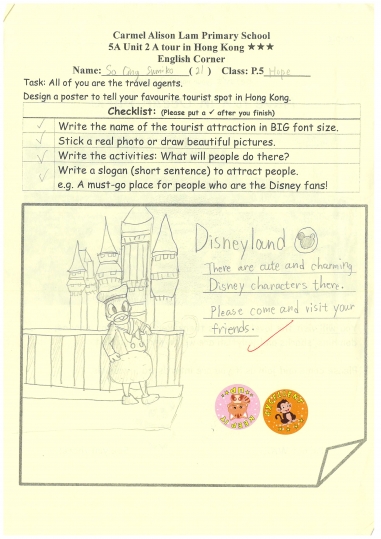 Carmel Alison Lam Primary School
5A Unit 2 A tour in Hong Kong ★★★
English Corner
Name: So Ching Sumiko (21) Class: P.5 Hope
Task: All of you are the travel agents.
Design a poster to tell your favourite tourist spot in Hong Kong.
Checklist: (Please put a ✓ after you finish)
✓ Write the name of the tourist attraction in BIG font size.
✓ Stick a real photo or draw beautiful pictures.
✓ Write the activities: What will people do there?
✓ Write a slogan (short sentence) to attract people.
e.g. A must-go place for people who are the Disney fans!
Disneyland
There are cute and charming
Disney characters there.
Please come and visit your
friends.
KEEP IT
EXCELLENT